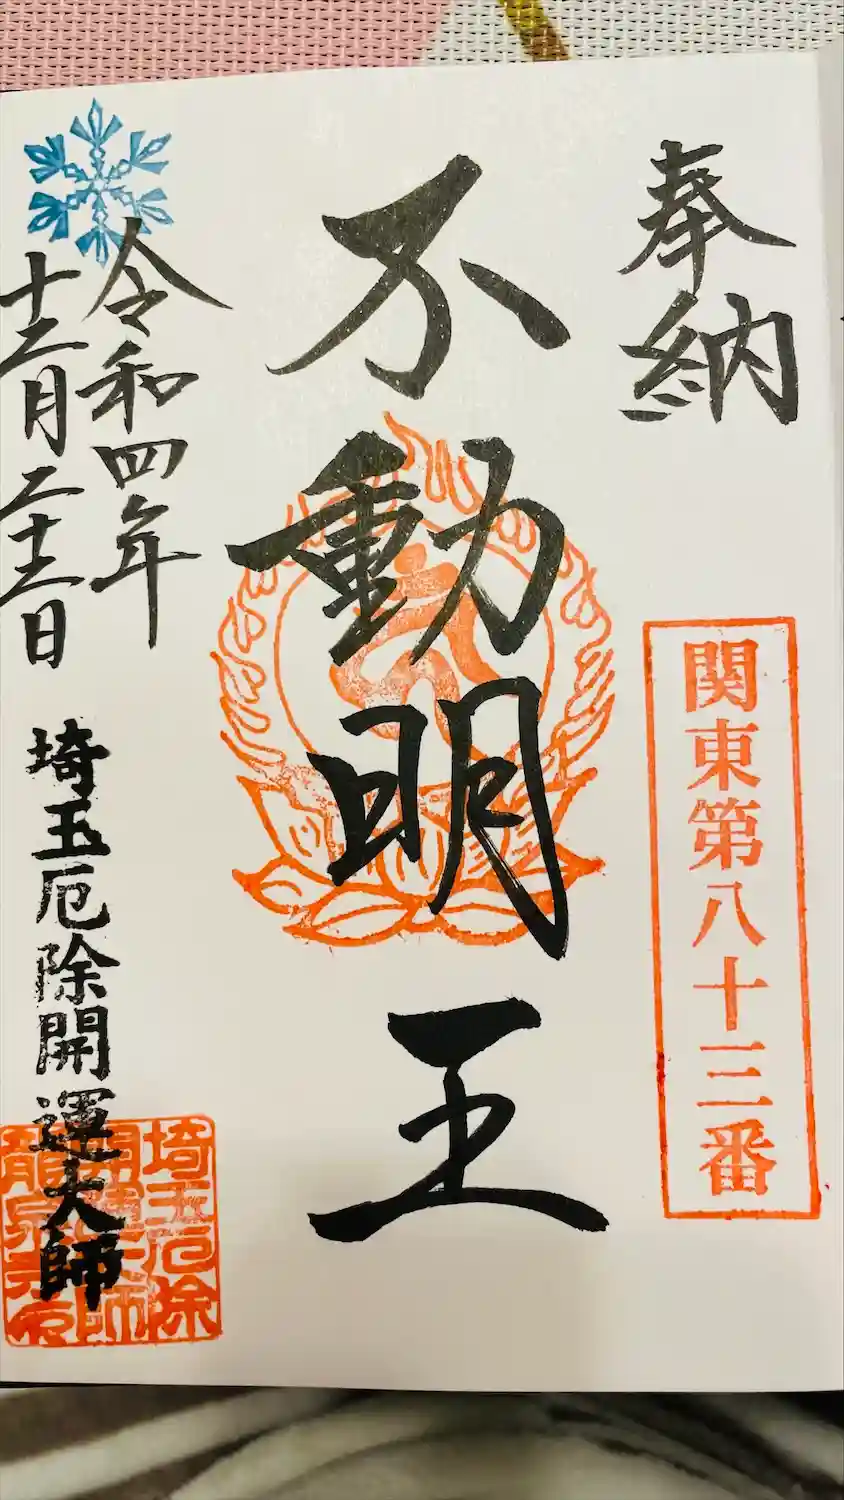 奉納
関東第八十三番
不動明王
令和四年
十二月二十二日
埼玉厄除開運大師
埼玉厄除
開運大師